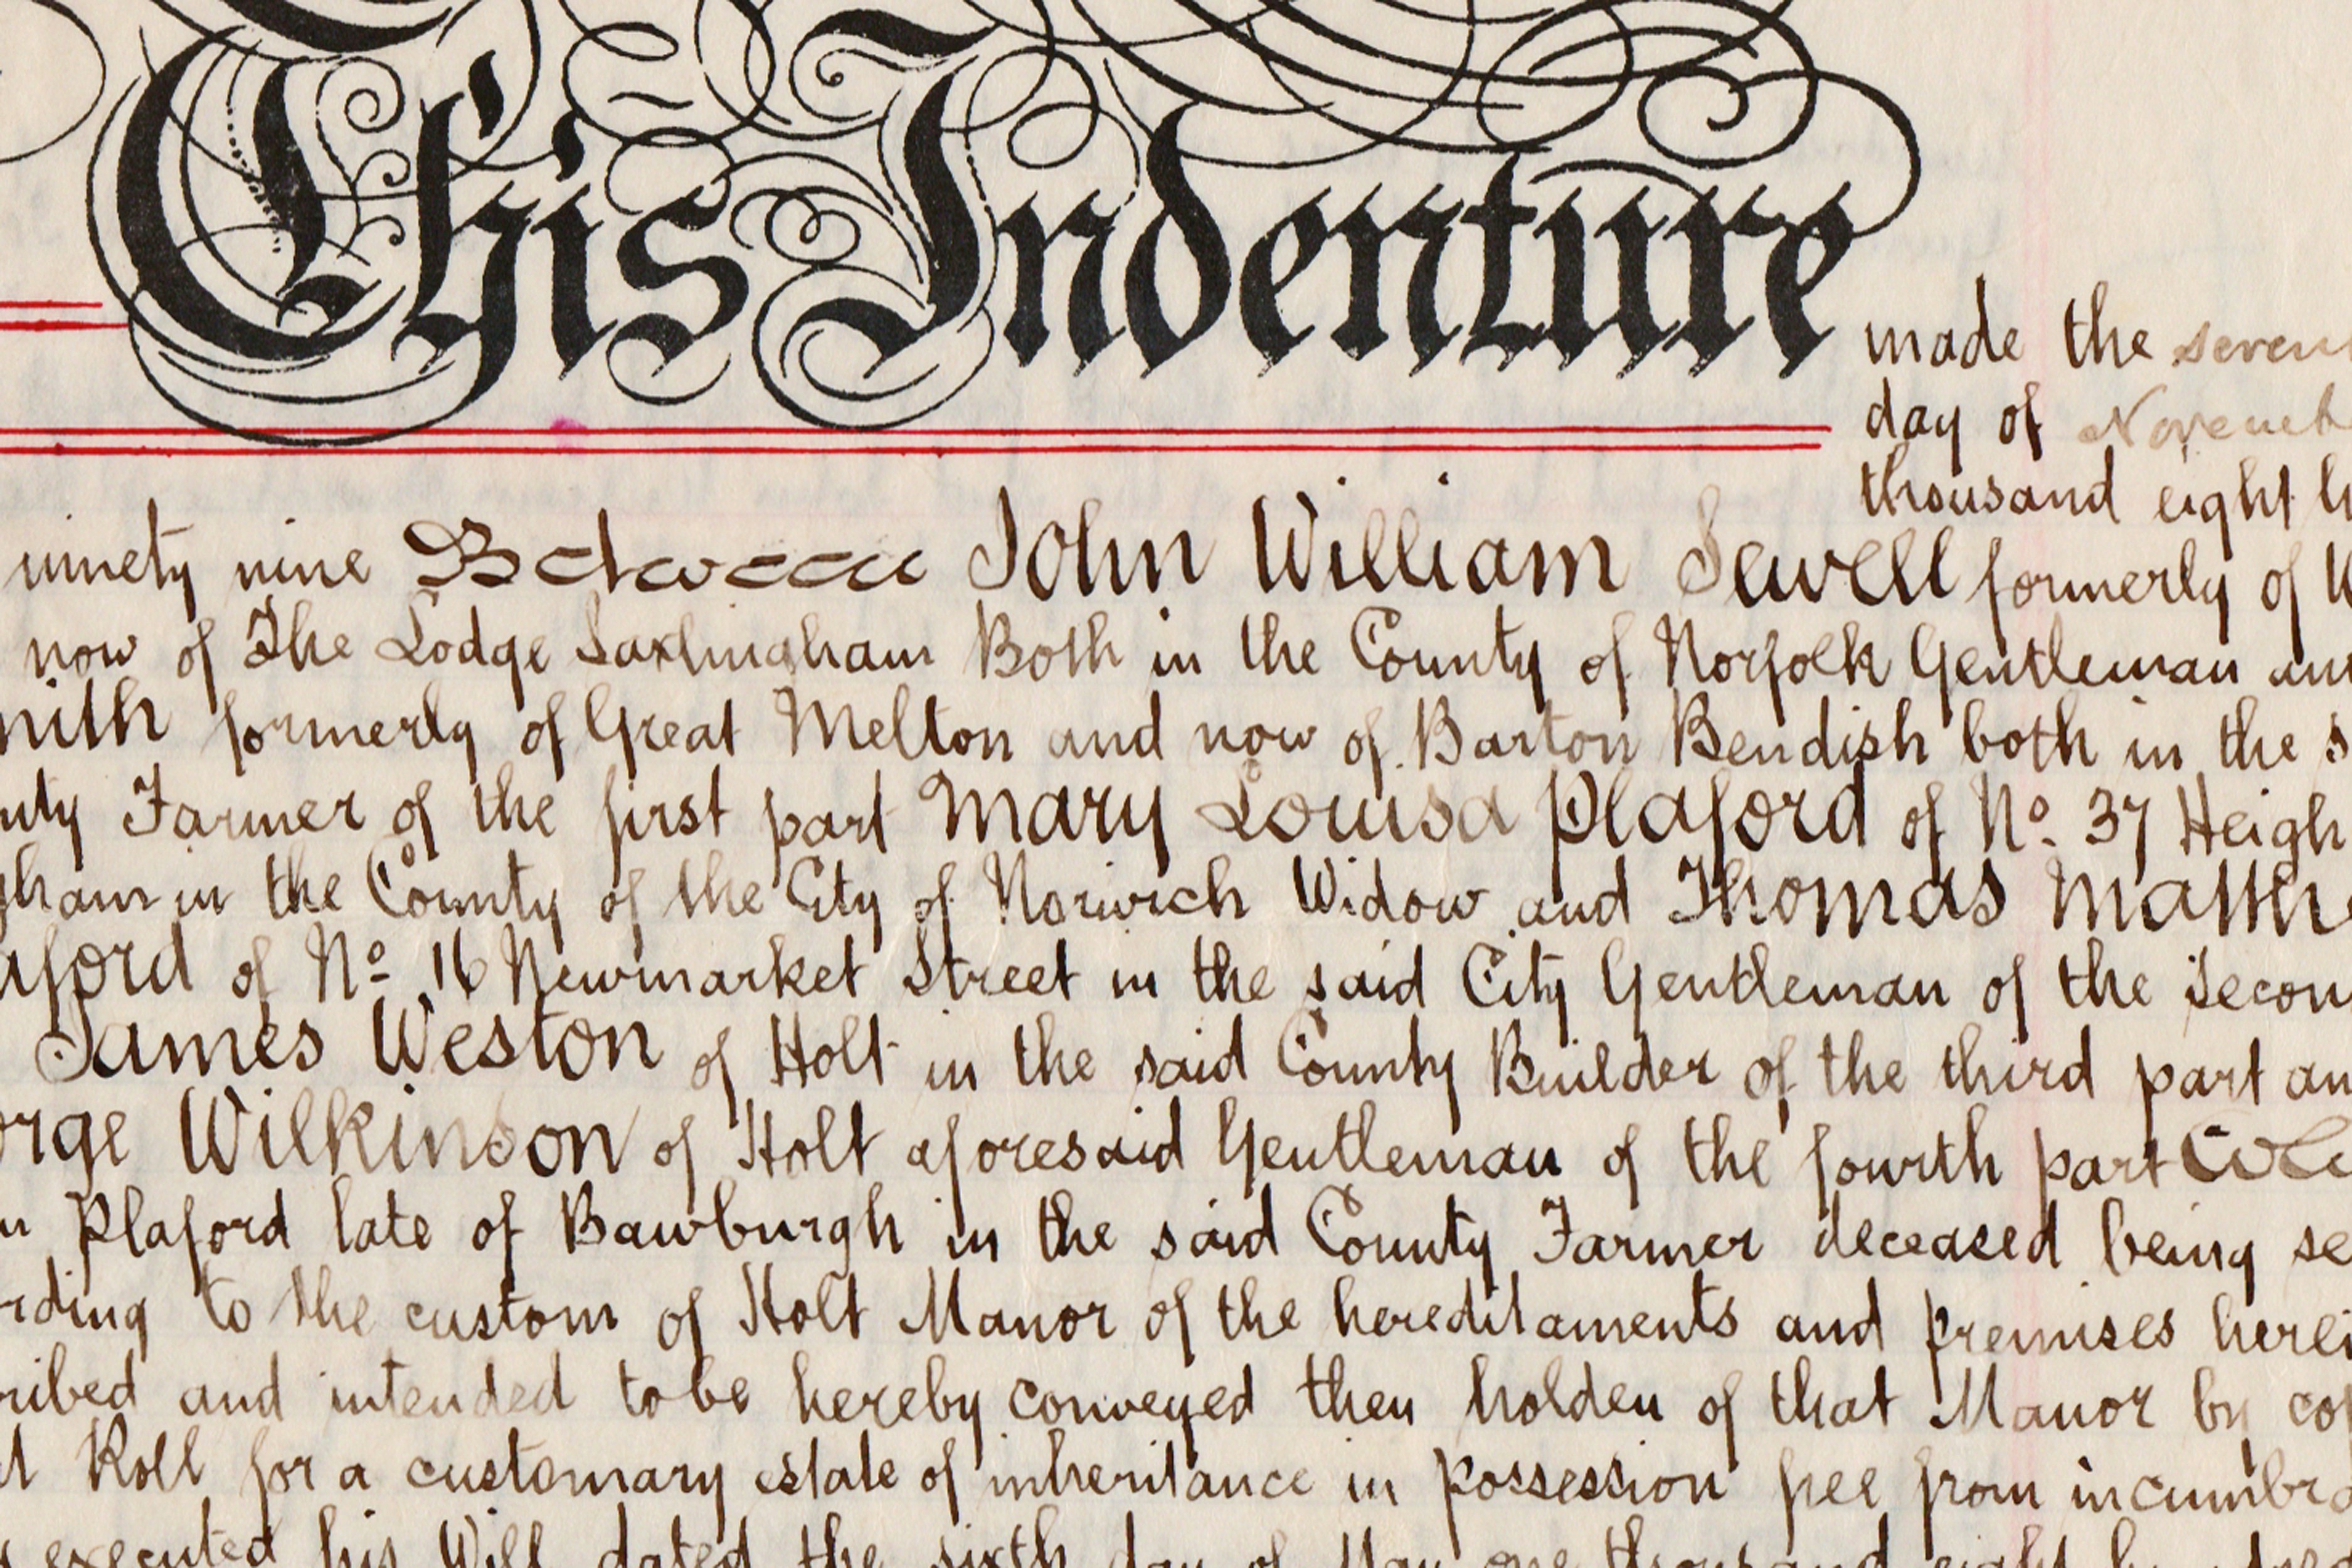 This Indenture
made the seven
day of Novemb
thousand eight h
ninety nine Between John William Sewell formerly of W
now of The Lodge Saxlingham Both in the County of Norfolk Gentleman an
mith formerly of Great Melton and now of Barton Bendish both in the s
nty Farmer of the first part Mary Louisa Plaford of No. 37 Heigh
gham in the County of the City of Norwich Widow and Thomas Matth
aford of No 16 Newmarket Street in the said City Gentleman of the Secon
James Weston of Holt in the said County Builder of the third part an
orge Wilkinson of Holt aforesaid Gentleman of the fourth part Whe
n Plaford late of Bawburgh in the said County Farmer deceased being se
rding to the custom of Holt Manor of the hereditaments and premises herei
ribed and intended to be hereby conveyed then holden of that Manor by cop
t Roll for a customary estate of inheritance in possession free from incumbra
executed his Will dated the sixth day of May one thousand eight hundre